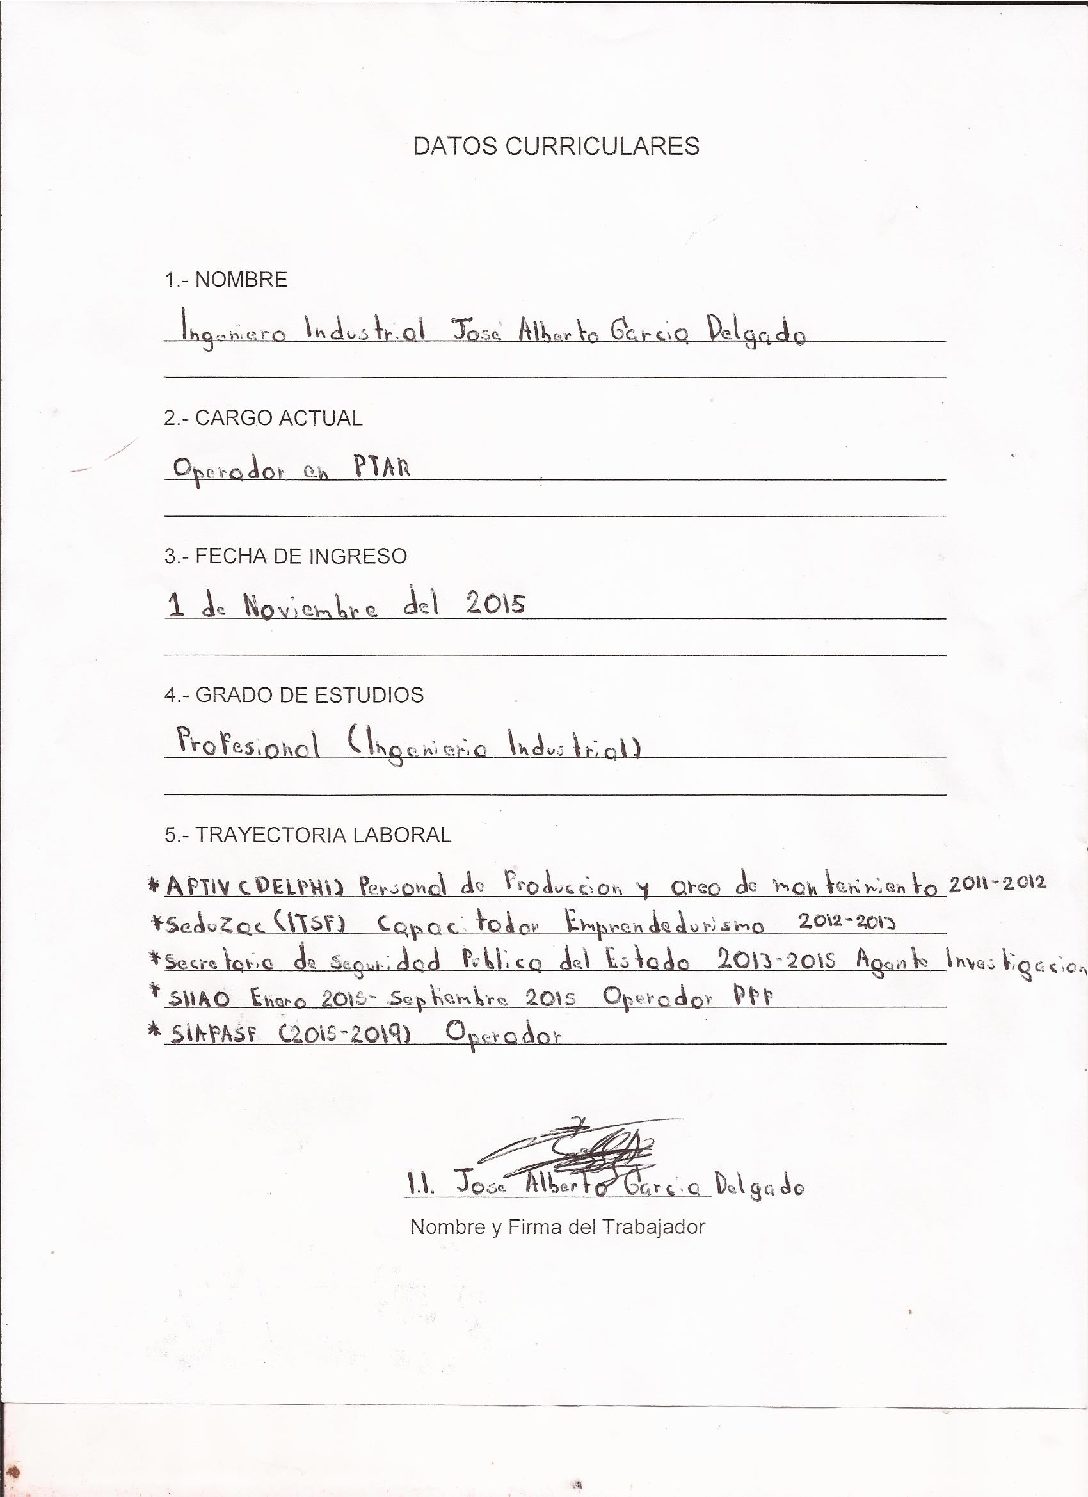 DATOS CURRICULARES
1.- NOMBRE
Ingeniero Industrial José Alberto Garcia Delgado
2.- CARGO ACTUAL
Operador en PTAR
3.- FECHA DE INGRESO
1 de Noviembre del 2015
4.- GRADO DE ESTUDIOS
Profesional (Ingenieria Industrial)
5.- TRAYECTORIA LABORAL
* APTIV (DELPHI) Personal de Produccion y area de mantenimiento 2011-2012
* Seduzac (ITSF) Capacitador Emprendedurismo 2012-2013
* Secretaria de Seguridad Publica del Estado 2013-2015 Agente Investigacion
* Enero 2015- Septhembre 2015 Operador
* SIAPASF (2015-2019) Operador
I.I. Jose Alberto Garcia Delgado
Nombre y Firma del Trabajador